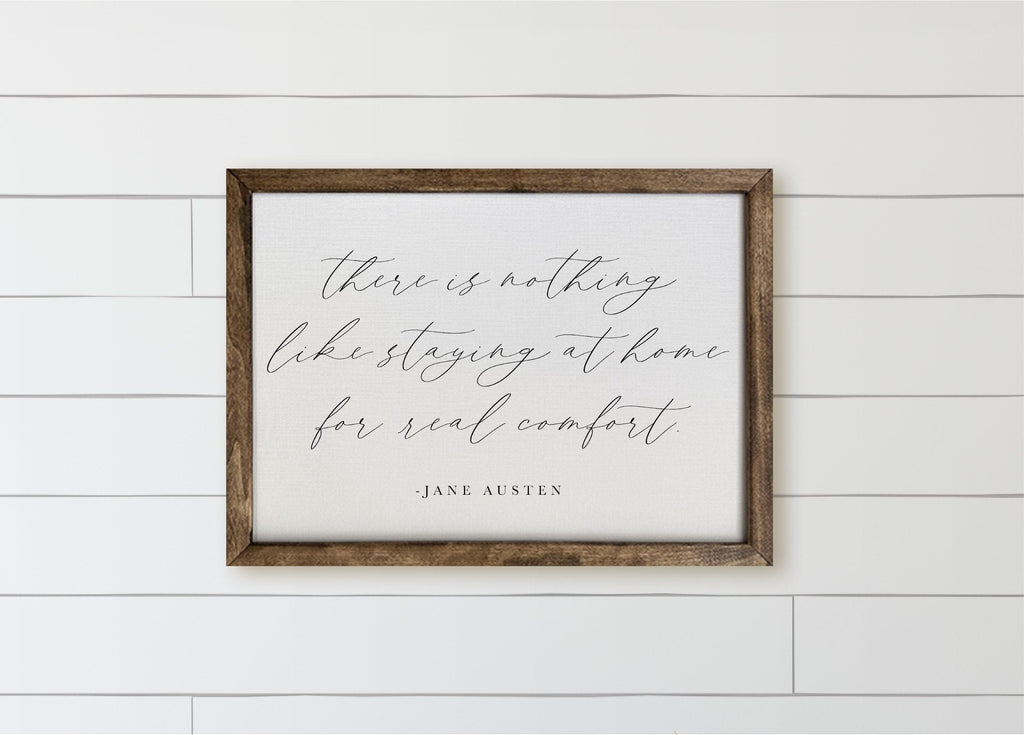 there is nothing
like staying at home
for real comfort.
-JANE AUSTEN